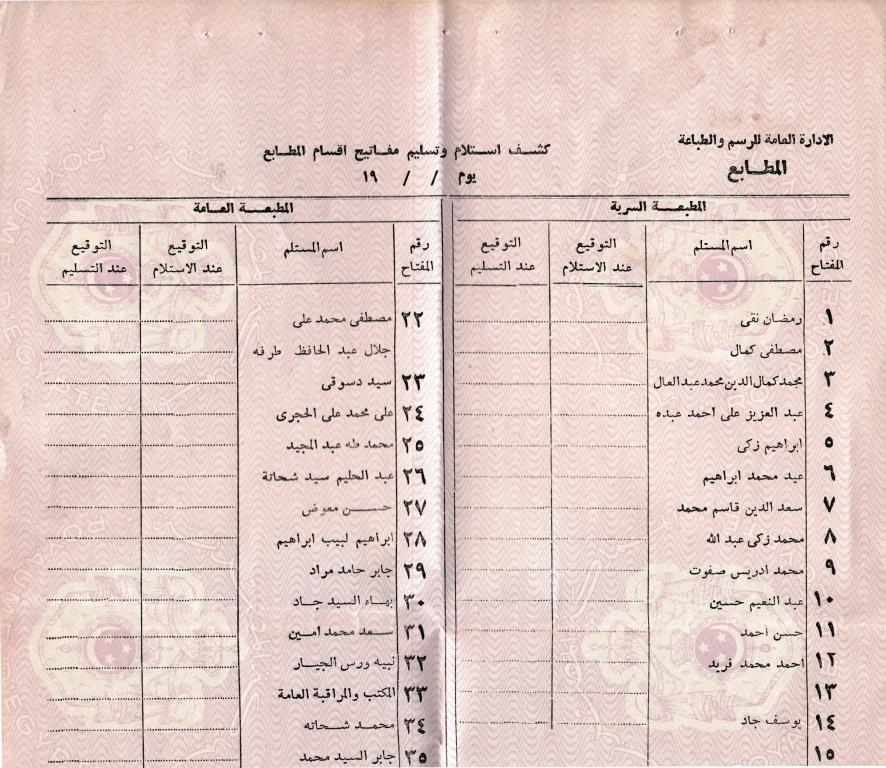 الادارة العامة للرسم والطباعة
المطـابع
كشـف استـلام وتسليم مفـاتيح اقسام المطـابع
يوم / / ١٩
المطبعـة السرية
رقم المفتاح
اسم المستلم
التوقيع عند الاستلام
التوقيع عند التسليم
١ رمضان نقى
٢ مصطفى كمال
٣ محمد كمال الدين محمد عبد العال
٤ عبد العزيز على احمد عبده
٥ ابراهيم زكى
٦ عيد محمد ابراهيم
٧ سعد الدين قاسم محمد
٨ محمد زكى عبد الله
٩ محمد ادريس صفوت
١٠ عبد النعيم حسين
١١ حسن احمد
١٢ احمد محمد فريد
١٣
١٤ يوسف جاد
١٥
المطبعـة العـامة
رقم المفتاح
اسم المستلم
التوقيع عند الاستلام
التوقيع عند التسليم
٢٢ مصطفى محمد على
جلال عبد الحافظ طرفه
٢٣ سيد دسوقى
٢٤ على محمد على الحجرى
٢٥ محمد طه عبد المجيد
٢٦ عبد الحليم سيد شحاتة
٢٧ حســن معوض
٢٨ ابراهيم لبيب ابراهيم
٢٩ جابر حامد مراد
٣٠ بهـاء السيد جـاد
٣١ سـعد محمد امـين
٣٢ نبيه ورس الجيـار
٣٣ المكتب والمراقبة العامة
٣٤ محمـد شـحاته
٣٥ جابر السيد محمد